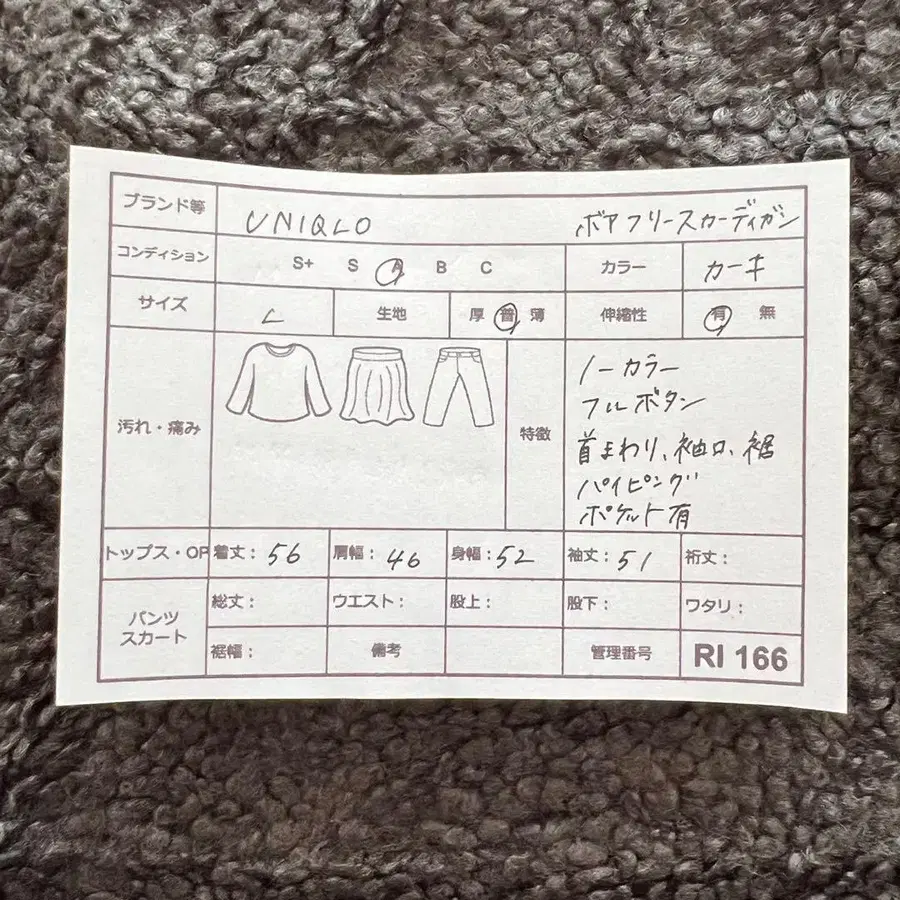 ブランド等 UNIQLO ボアフリースカーディガン
コンディション S+ S A B C カラー カーキ
サイズ L 生地 厚 普 薄 伸縮性 有 無
汚れ・痛み 特徴
ノーカラー
フルボタン
首まわり、袖口、裾
パイピング
ポケット有
トップス・OP 着丈: 56 肩幅: 46 身幅: 52 袖丈: 51 裄丈:
パンツ
スカート
総丈: ウエスト: 股上: 股下: ワタリ:
裾幅: 備考 管理番号 RI 166